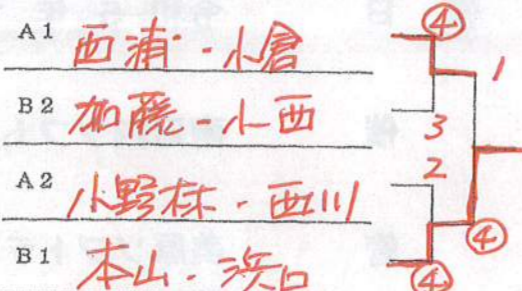 A1 西浦・小倉 ④
1
B2 加藤・小西 3
A2 小野林・西川 2
④
B1 本山・浜口 ④